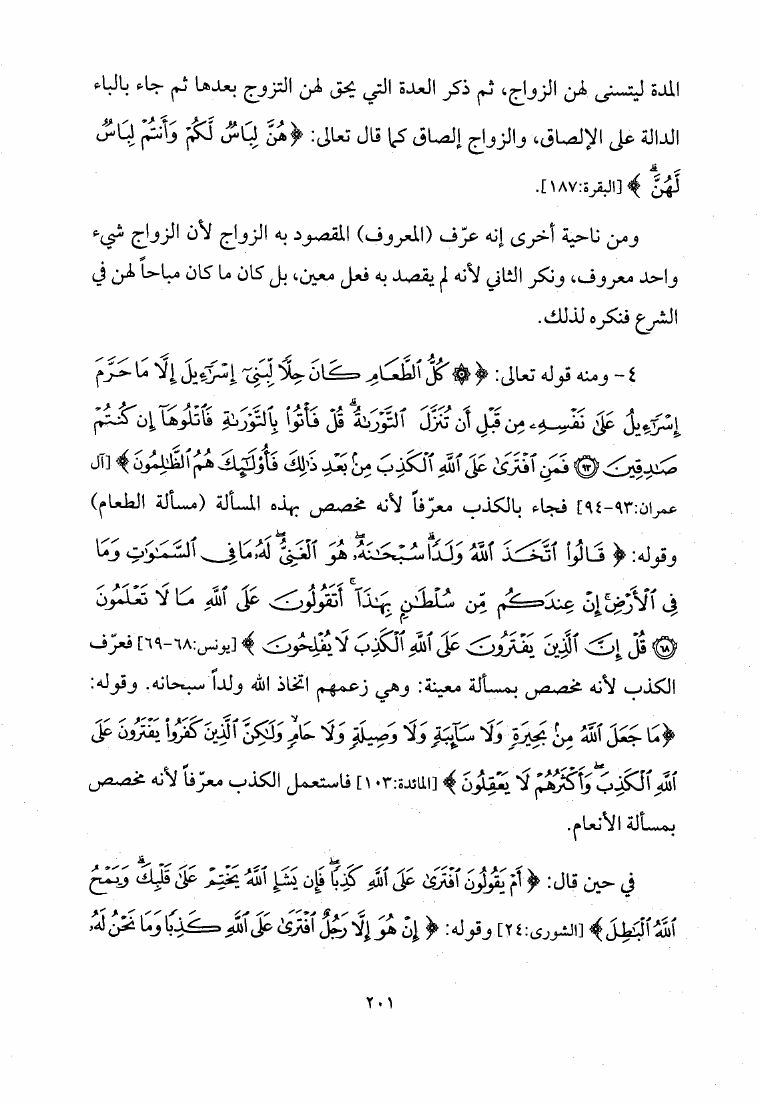 المدة ليتسنى لهن الزواج، ثم ذكر العدة التي يحق لهن التزوج بعدها ثم جاء بالباء
الدالة على الإلصاق، والزواج إلصاق كما قال تعالى: ﴿هُنَّ لِبَاسٌ لَّكُمْ وَأَنتُمْ لِبَاسٌ
لَّهُنَّ ۗ﴾ [البقرة:١٨٧].
ومن ناحية أخرى إنه عرّف (المعروف) المقصود به الزواج لأن الزواج شيء
واحد معروف، ونكر الثاني لأنه لم يقصد به فعل معين، بل كان ما كان مباحاً لهن في
الشرع فنكره لذلك.
٤- ومنه قوله تعالى: ﴿۞ كُلُّ ٱلطَّعَامِ كَانَ حِلًّا لِّبَنِىٓ إِسْرَٰٓءِيلَ إِلَّا مَا حَرَّمَ
إِسْرَٰٓءِيلُ عَلَىٰ نَفْسِهِۦ مِن قَبْلِ أَن تُنَزَّلَ ٱلتَّوْرَىٰةُ ۗ قُلْ فَأْتُوا۟ بِٱلتَّوْرَىٰةِ فَٱتْلُوهَآ إِن كُنتُمْ
صَٰدِقِينَ ﴿٩٣﴾ فَمَنِ ٱفْتَرَىٰ عَلَى ٱللَّهِ ٱلْكَذِبَ مِنۢ بَعْدِ ذَٰلِكَ فَأُو۟لَٰٓئِكَ هُمُ ٱلظَّٰلِمُونَ﴾ [آل
عمران:٩٣-٩٤] فجاء بالكذب معرّفاً لأنه مخصص بهذه المسألة (مسألة الطعام)
وقوله: ﴿قَالُوا۟ ٱتَّخَذَ ٱللَّهُ وَلَدًا ۗ سُبْحَٰنَهُۥ ۖ هُوَ ٱلْغَنِىُّ ۖ لَهُۥ مَا فِى ٱلسَّمَٰوَٰتِ وَمَا
فِى ٱلْأَرْضِ ۚ إِنْ عِندَكُم مِّن سُلْطَٰنٍۭ بِهَٰذَآ ۚ أَتَقُولُونَ عَلَى ٱللَّهِ مَا لَا تَعْلَمُونَ
﴿٦٨﴾ قُلْ إِنَّ ٱلَّذِينَ يَفْتَرُونَ عَلَى ٱللَّهِ ٱلْكَذِبَ لَا يُفْلِحُونَ﴾ [يونس:٦٨-٦٩] فعرّف
الكذب لأنه مخصص بمسألة معينة: وهي زعمهم اتخاذ الله ولداً سبحانه. وقوله:
﴿مَا جَعَلَ ٱللَّهُ مِنۢ بَحِيرَةٍ وَلَا سَآئِبَةٍ وَلَا وَصِيلَةٍ وَلَا حَامٍ ۙ وَلَٰكِنَّ ٱلَّذِينَ كَفَرُوا۟ يَفْتَرُونَ عَلَى
ٱللَّهِ ٱلْكَذِبَ ۖ وَأَكْثَرُهُمْ لَا يَعْقِلُونَ﴾ [المائدة:١٠٣] فاستعمل الكذب معرّفاً لأنه مخصص
بمسألة الأنعام.
في حين قال: ﴿أَمْ يَقُولُونَ ٱفْتَرَىٰ عَلَى ٱللَّهِ كَذِبًا ۖ فَإِن يَشَإِ ٱللَّهُ يَخْتِمْ عَلَىٰ قَلْبِكَ ۗ وَيَمْحُ
ٱللَّهُ ٱلْبَٰطِلَ﴾ [الشورى:٢٤] وقوله: ﴿إِنْ هُوَ إِلَّا رَجُلٌ ٱفْتَرَىٰ عَلَى ٱللَّهِ كَذِبًا وَمَا نَحْنُ لَهُۥ
٢٠١